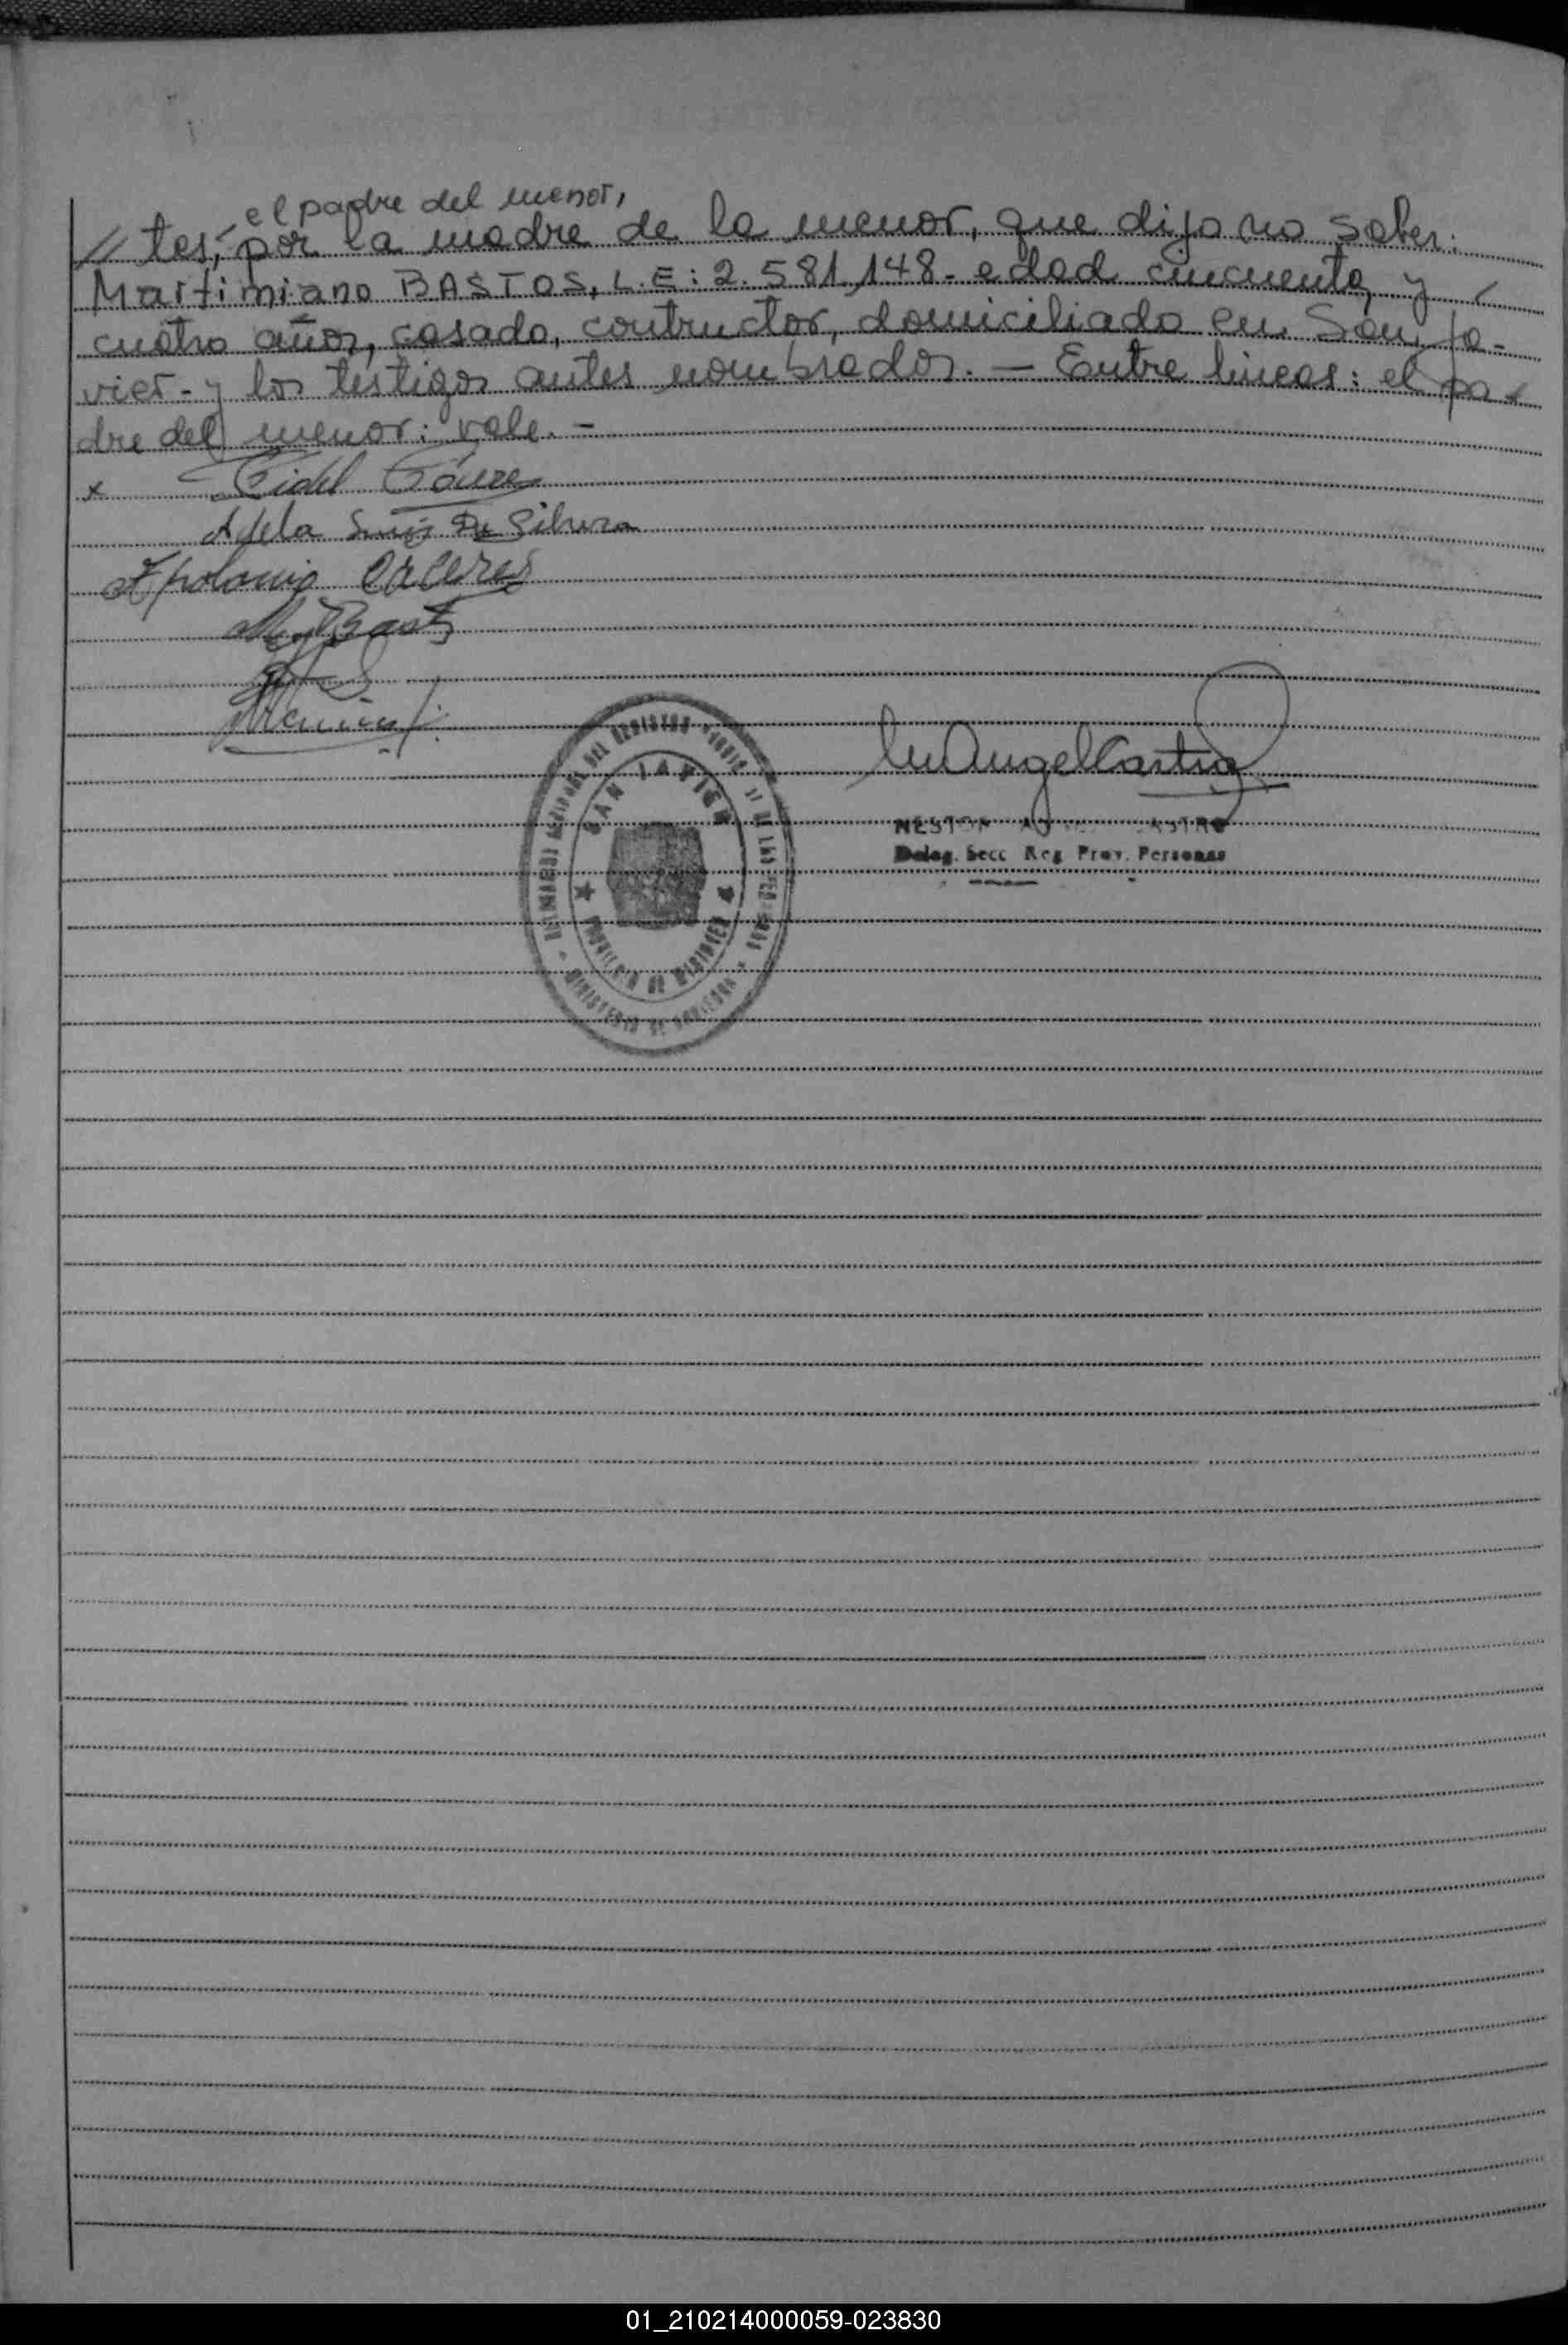 el padre del menor,
// tes, por la madre de la menor, que dijo no saber:
Martimiano BASTOS, L.E: 2.581,148- edad cincuenta y
cuatro años, casado, contructor, domiciliado en San Ja-
vier- y los testigos antes nombrados. — Entre lineas: el pa-
dre del menor: vale. -
x Fidel
Adela De Silvera
Apolonio Caceres
M. Bast
Angel Castro
SAN JAVIER
PROVINCIA DE MISIONES
MINISTERIO DE GOBIERNO
NESTOR
Deleg. Secc Reg Prov. Personas
01_210214000059-023830